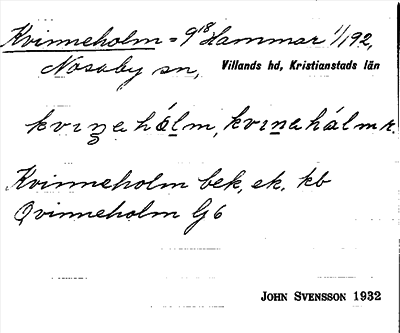 Kvinneholm = 9¹⁸ Hammar 1/192,
Nosaby sn, Villands hd, Kristianstads län
kvinahålm, kvinahálm k.
Kvinneholm bek. ek. kb
Qvinneholm G6
JOHN SVENSSON 1932